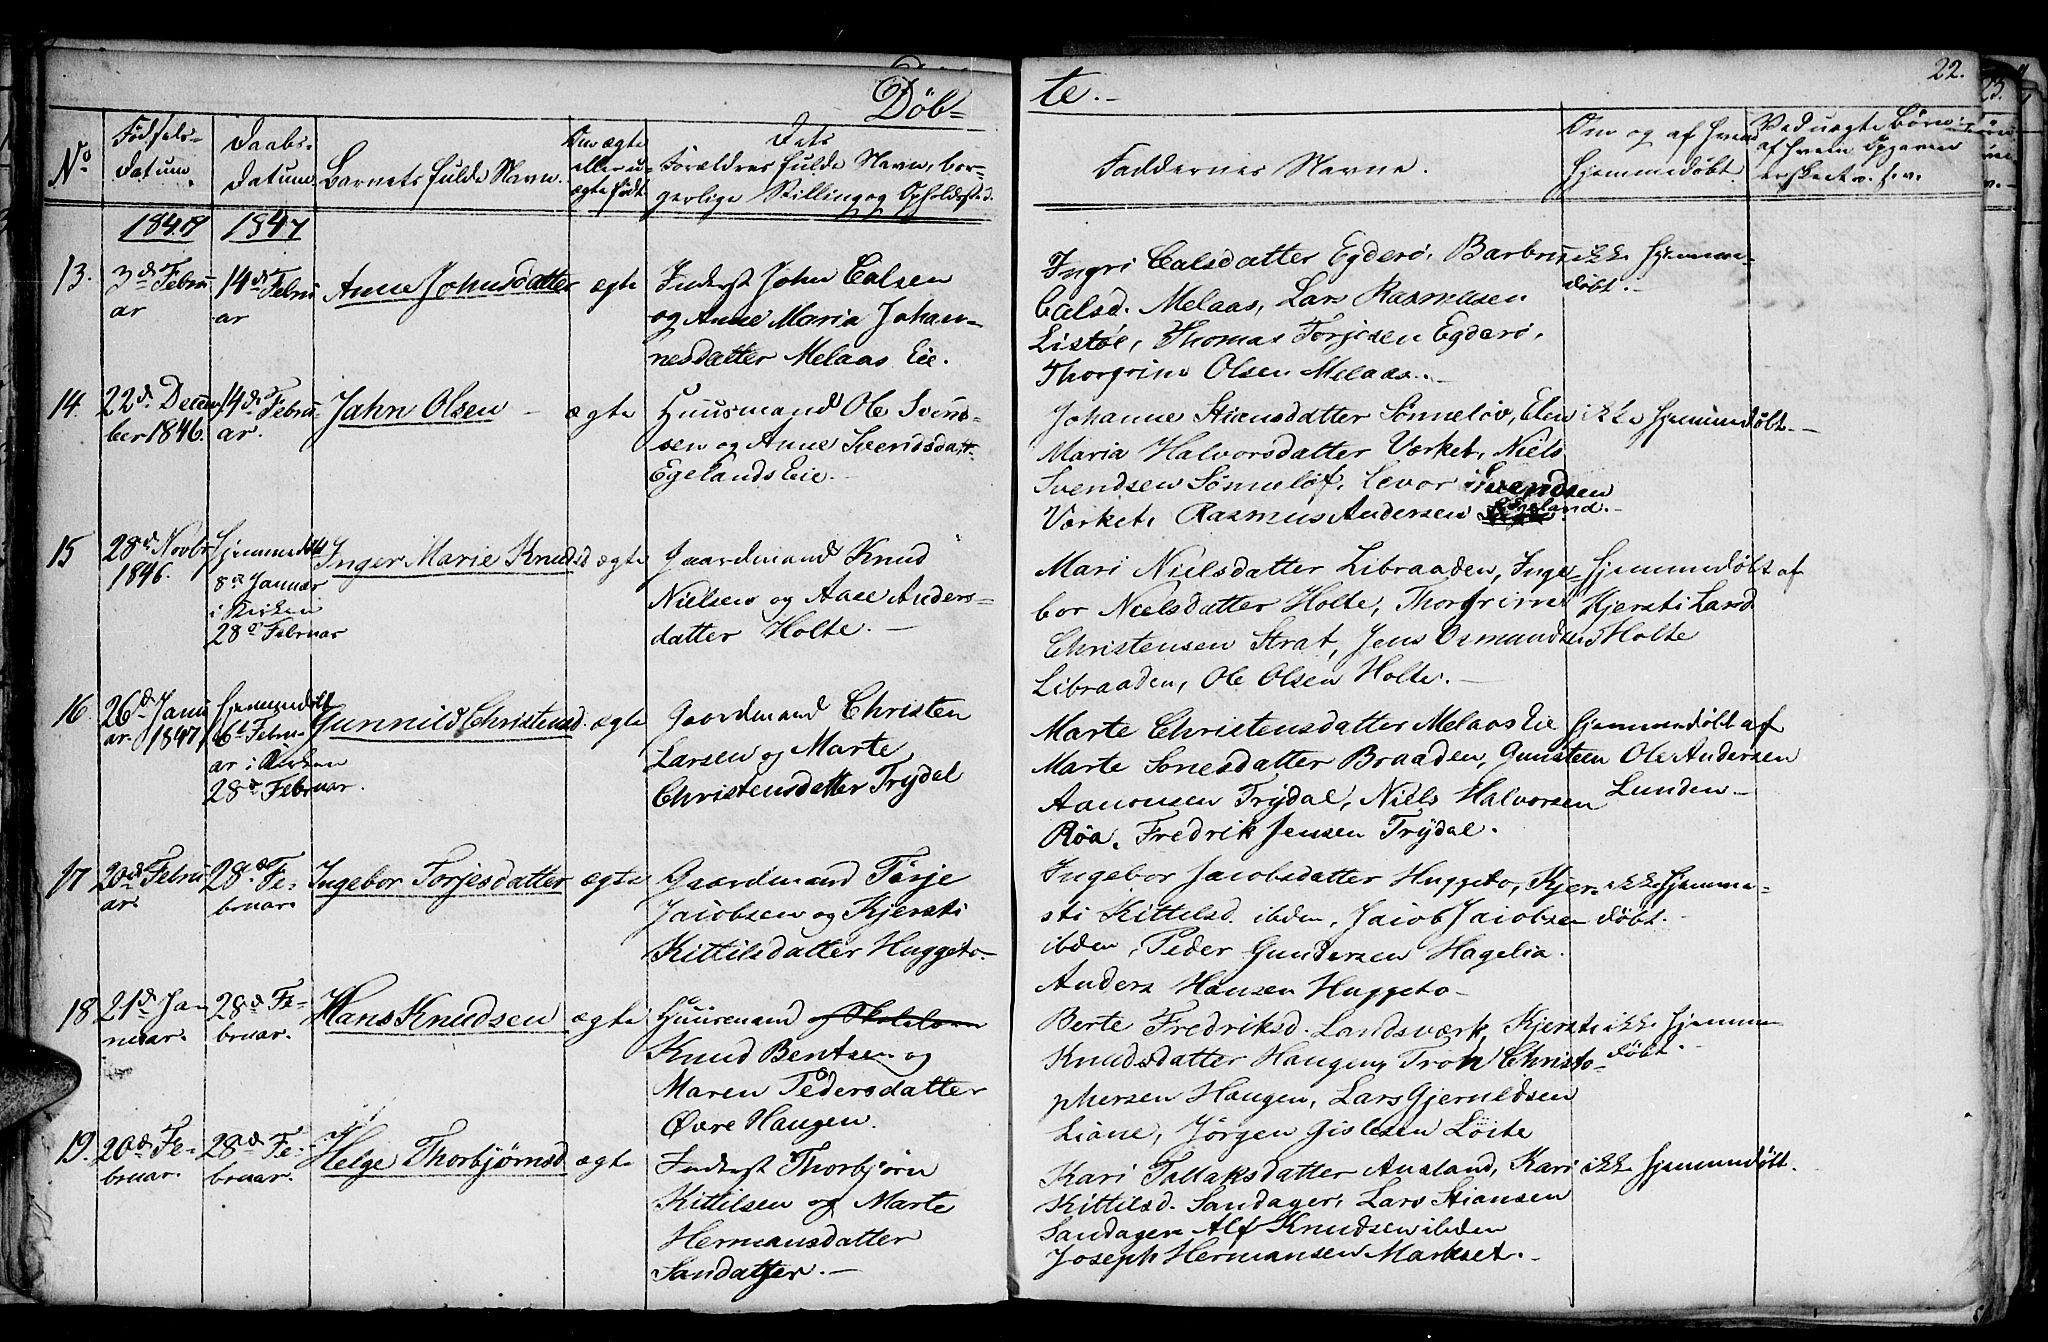 Döb-
te.-
22.
No
Fødsels-
datum.
Daabs-
datum
Barnets fulde Navn.
Om ægte
eller u-
ægte født
Dets
Forældres fulde Navn, bor-
gerlige Stilling og Opholdssted.
Faddernes Navne.
Om og af hvem
hjemmedøbt.
Ved uægte Børn
af hvem Opgaven
er skeet o. s. v.
1847
1847
13.
3die Febru
ar
14de Febru
ar
Anne Johnsdatter
ægte
Inderst John Calsen
og Anne Maria Johan-
nesdatter Melaas Eie.
Ingri Calsdatter Egderø, Barbru
Calsd. Melaas, Lars Rasmusen
Listøl, Thomas Torjesen Egderø,
Thorgrim Olsen Melaas.-
ikke hjemme-
døbt.-
14.
22d. Decem
ber 1846.
14de Febru-
ar.
Jahn Olsen -
ægte
Huusmand Ole Svend-
sen og Anne Svendsdatt.
Egelands Eie.
Johanne Stiensdatter Sønneløv, Elen
Maria Halvorsdatter Værket, Niels
Svendsen Sønneløf, Levor Svendsen
Værket, Rasmus Andersen Egeland.-
ikke hjemmedøbt.-
15
28de Novbr
1846.
hjemmedøbt
8de Januar
i Kirken
28de Februar
Inger Marie Knudsd
ægte
Gaardmand Knud
Nielsen og Aase Anders-
datter Holte.-
Mari Nielsdatter Libraaden, Inge-
bor Nielsdatter Holte, Thorgrim
Christensen Strat, Jens Osmundsen
Libraaden, Ole Olsen Holte.-
hjemmedøbt af
Kjersti Land
Holte
16.
26d. Janu
ar 1847,
hjemmedøbt
6te Febru-
ar i Kirken
28de Februar.
Gunnild Christensd.
ægte
Gaardmand Christen
Larsen og Marte
Christensdatter Trydal
Marte Christensdatter Melaas Eie
Marte Sonesdatter Braaden, Gunsteen
Aanonsen Trydal, Niels Halvorsen
Røa, Fredrik Jensen Trydal.
hjemmedøbt af
Ole Andersen
Lunden-
17
20de Febru
ar
28de Fe-
bruar
Ingebor Torjesdatter
ægte
Gaardmand Tørje
Jacobsen og Kjersti
Kittilsdatter Huggeto-
Ingebor Jacobsdatter Huggeto, Kjer-
sti Kittelsd. ibden, Jacob Jacobsen
ibden, Peder Gundersen Hagelia.
Anders Hansen Huggeto-
ikke hjemme-
døbt.-
18
21de Jan
nuar
28de Fe-
bruar.
Hans Knudsen
ægte
Huusmand
Knud Bentsen og
Maren Pedersdatter
Øvre Haugen.
Berte Fredriksd. Landsværk, Kjersti
Knudsdatter Haugen, Tron Christo-
phersen Haugen, Lars Gjeruldsen
Liane, Jørgen Gislesen Löite
ikke hjemme
døbt.-
19.
20de Fe-
bruar.
28de Fe-
bruar.
Helge Thorbjørnsd
ægte
Inderst Thorbjørn
Kittilsen og Marte
Hermansdatter
Sandager.-
Kari Tallaksdatter Ausland, Kari
Kittilsd. Sandager, Lars Stiansen
Sandager Alf Knudsen ibden
Joseph Hermansen Markset.-
ikke hjemmedøbt.